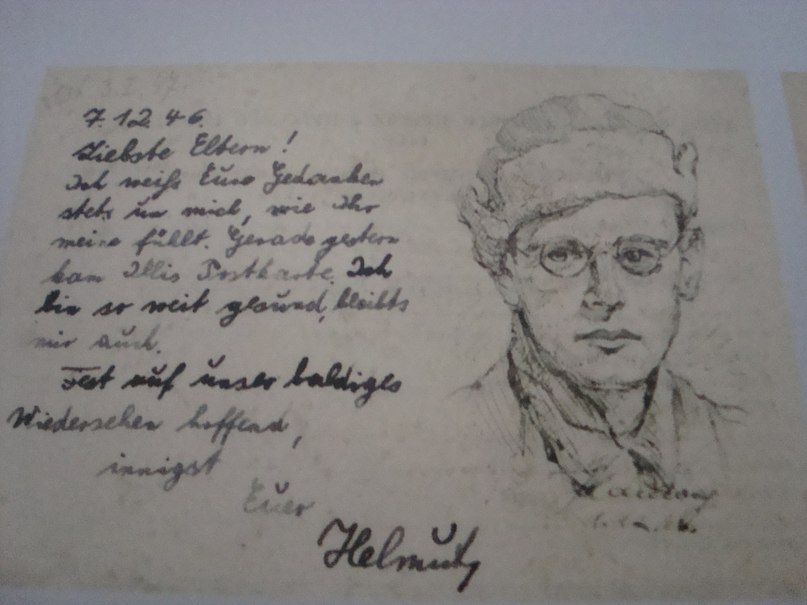 7.12.46.
Liebste Eltern!
Ich weiß Eure Gedanken
stets um mich, wie Ihr
meine fühlt. Gerade gestern
kam Illis Postkarte. Ich
bin so weit gesund, bleibts
mir auch.
Fest auf unser baldiges
Wiedersehen hoffend,
innigst
Euer
Helmut